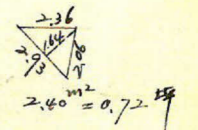 2.36
1.64
2.93
2.06
2.40 m² = 0.72 坪